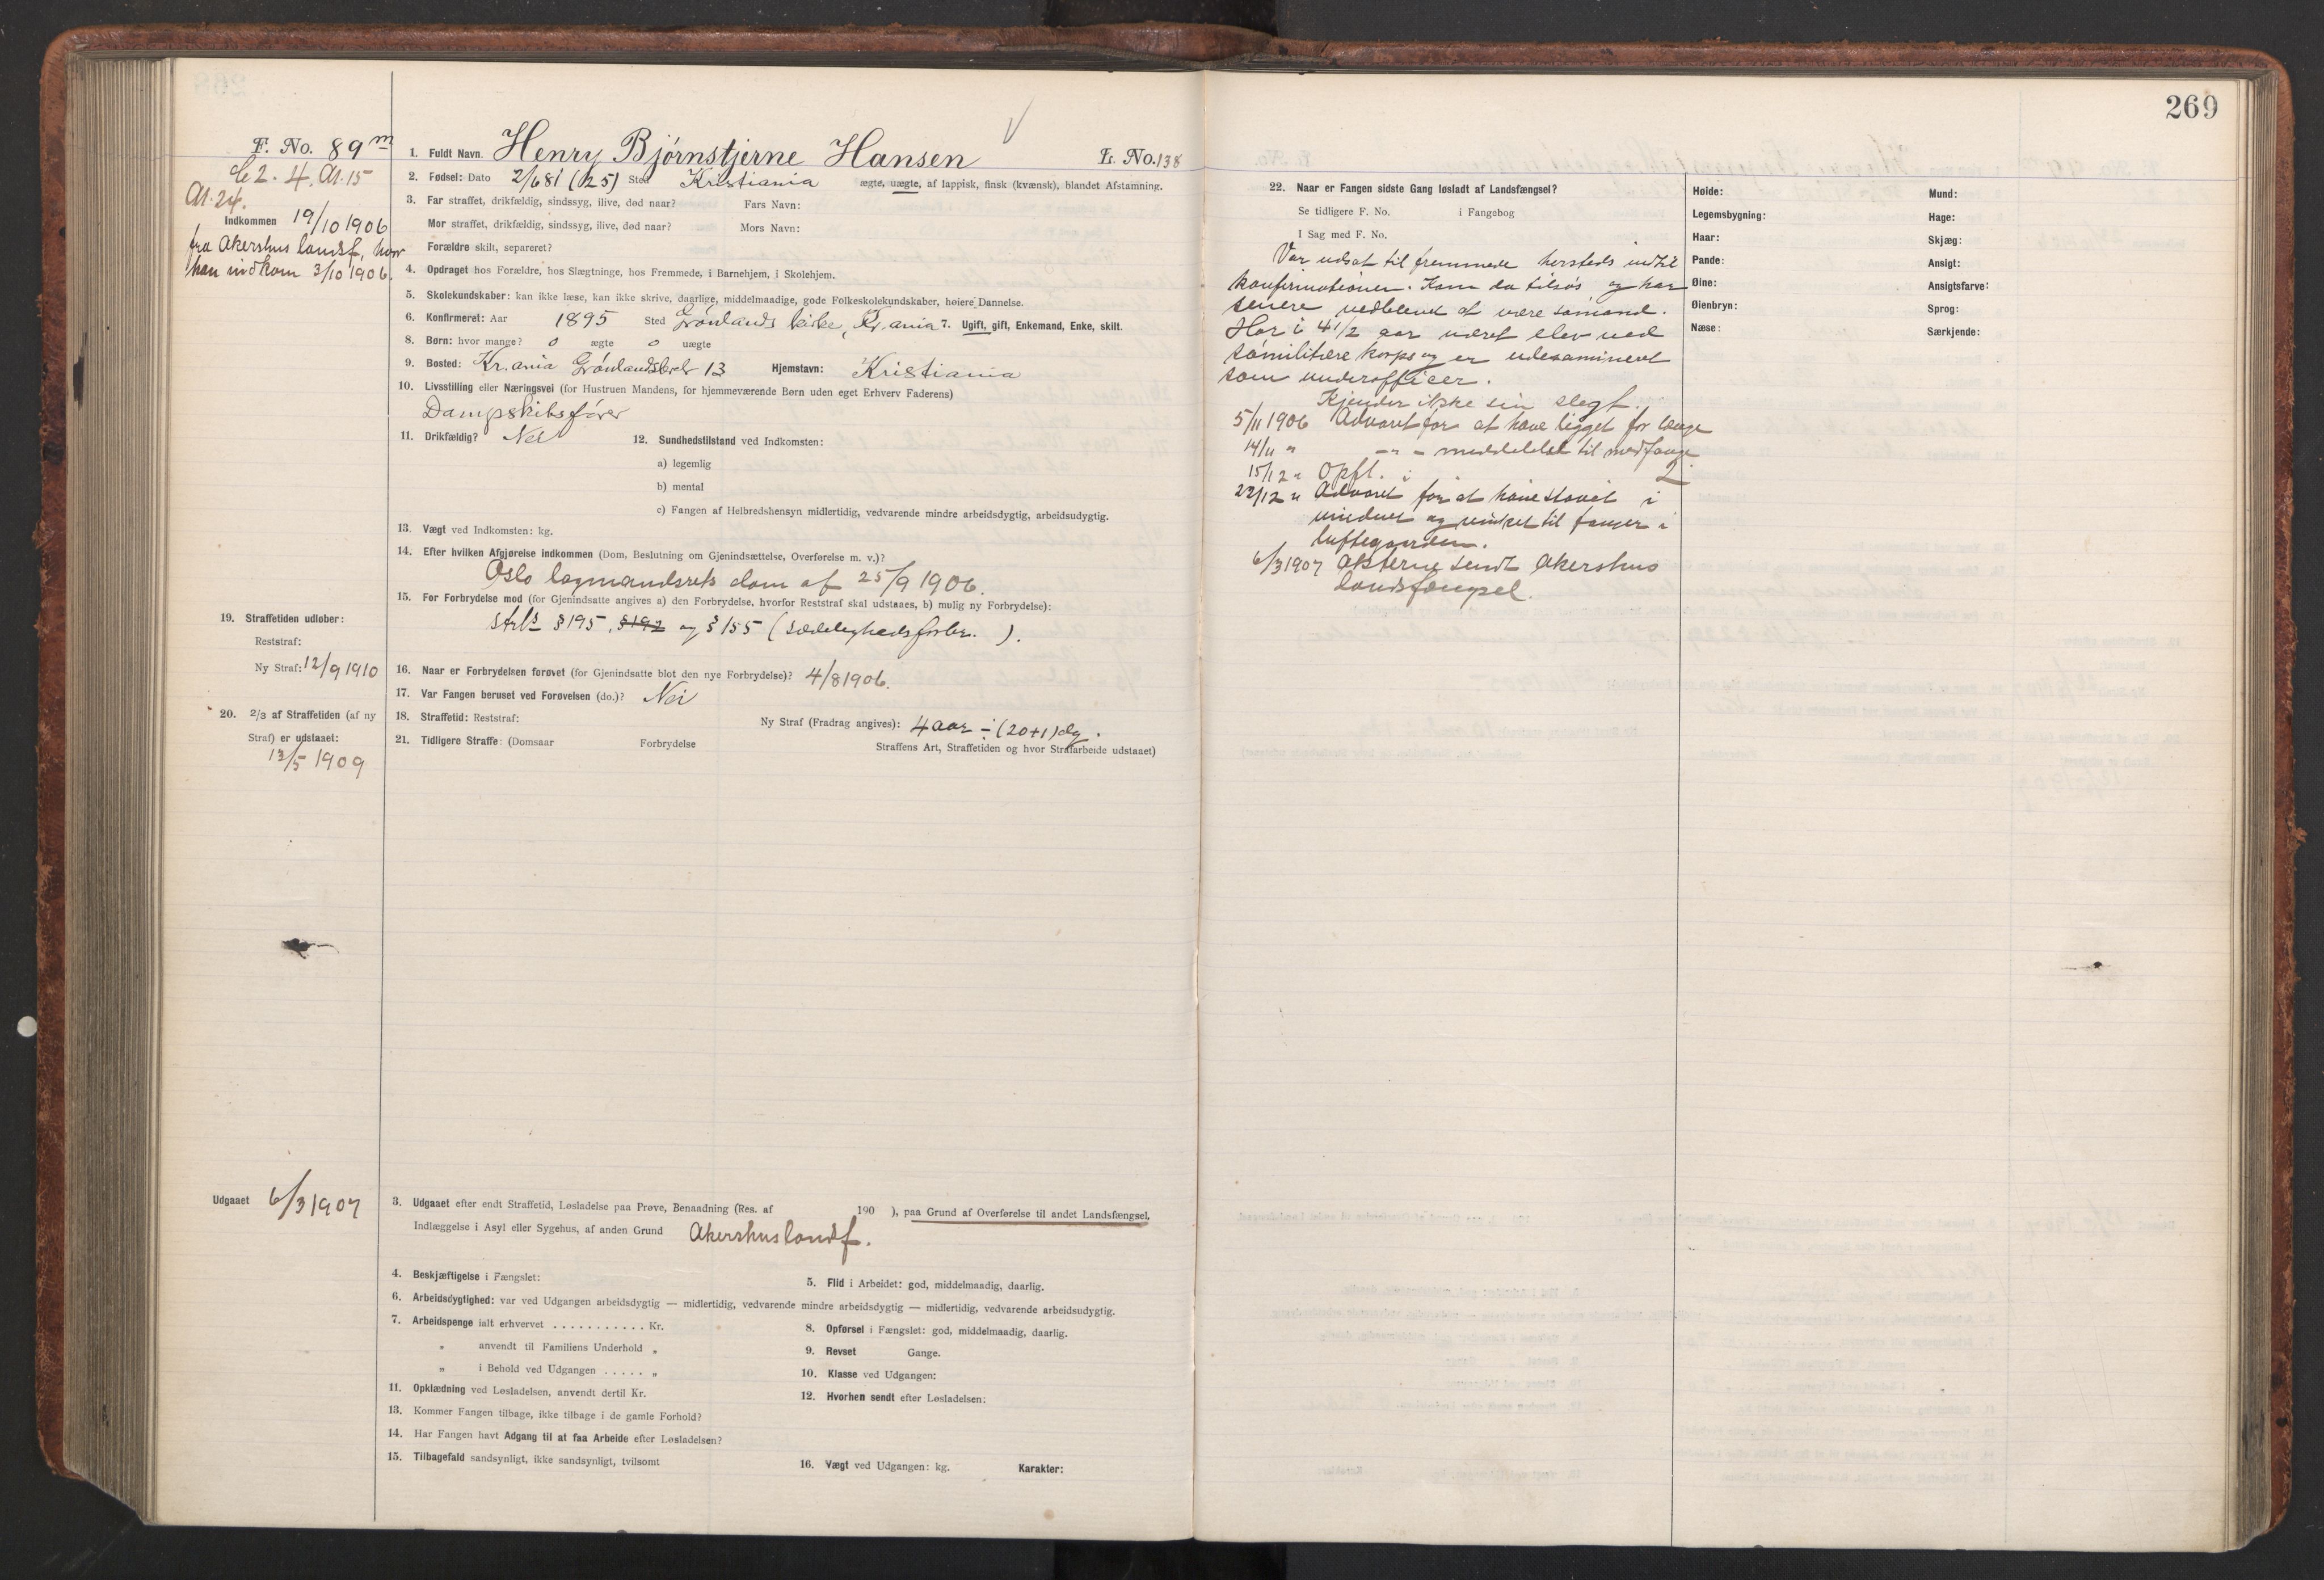 269
F. No. 89 m
Cl 2. 4. At. 15
At. 24.
Indkommen 19/10 1906
fra Akershus landsf., hvor
han indkom 3/10 1906.
1. Fuldt Navn. Henry Bjørnstjerne Hansen L. No. 138
2. Fødsel: Dato 2/6 81 (25) Sted Kristiania ægte, uægte, af lappisk, finsk (kvænsk), blandet Afstamning.
3. Far straffet, drikfældig, sindssyg, ilive, død naar? Fars Navn:
Mor straffet, drikfældig, sindssyg, ilive, død naar? Mors Navn:
Forældre skilt, separeret?
4. Opdraget hos Forældre, hos Slægtninge, hos Fremmede, i Barnehjem, i Skolehjem.
5. Skolekundskaber: kan ikke læse, kan ikke skrive, daarlige, middelmaadige, gode Folkeskolekundskaber, høiere Dannelse.
6. Konfirmeret: Aar 1895 Sted Grønlands kirke, Kr.ania 7. Ugift, gift, Enkemand, Enke, skilt.
8. Børn: hvor mange? 0 ægte 0 uægte
9. Bosted: Kr.ania Grønlandsleret 13 Hjemstavn: Kristiania
10. Livsstilling eller Næringsvei (for Hustruen Mandens, for hjemmeværende Børn uden eget Erhverv Faderens)
Dampskibsfører
11. Drikfældig? Nei 12. Sundhedstilstand ved Indkomsten:
a) legemlig
b) mental
c) Fangen af Helbredshensyn midlertidig, vedvarende mindre arbeidsdygtig, arbeidsudygtig.
13. Vægt ved Indkomsten: kg.
14. Efter hvilken Afgjørelse indkommen (Dom, Beslutning om Gjenindsættelse, Overførelse m. v.)?
Oslo lagmandsrets dom af 25/9 1906.
15. For Forbrydelse mod (for Gjenindsatte angives a) den Forbrydelse, hvorfor Reststraf skal udstaaes, b) mulig ny Forbrydelse):
Strl's § 195, § 192 og § 155 (sædelighedsforbr. ).
19. Straffetiden udløber:
Reststraf:
Ny Straf: 12/9 1910
16. Naar er Forbrydelsen forøvet (for Gjenindsatte blot den nye Forbrydelse)? 4/8 1906.
17. Var Fangen beruset ved Forøvelsen (do.)? Nei
20. 2/3 af Straffetiden (af ny
Straf) er udstaaet:
13/5 1909
18. Straffetid: Reststraf: Ny Straf (Fradrag angives): 4 aar ÷ (20+1) dg.
21. Tidligere Straffe: (Domsaar Forbrydelse Straffens Art, Straffetiden og hvor Strafarbeide udstaaet)
Udgaaet 6/3 1907
3. Udgaaet efter endt Straffetid, Løsladelse paa Prøve, Benaadning (Res. af 190 ), paa Grund af Overførelse til andet Landsfængsel,
Indlæggelse i Asyl eller Sygehus, af anden Grund Akershus landsf.
4. Beskjæftigelse i Fængslet: 5. Flid i Arbeidet: god, middelmaadig, daarlig.
6. Arbeidsdygtighed: var ved Udgangen arbeidsdygtig — midlertidig, vedvarende mindre arbeidsdygtig — midlertidig, vedvarende arbeidsudygtig.
7. Arbeidspenge ialt erhvervet . . . . . . . . . . . Kr. 8. Opførsel i Fængslet: god, middelmaadig, daarlig.
„ anvendt til Familiens Underhold „ 9. Revset Gange.
„ i Behold ved Udgangen . . . . . „ 10. Klasse ved Udgangen:
11. Opklædning ved Løsladelsen, anvendt dertil Kr. 12. Hvorhen sendt efter Løsladelsen:
13. Kommer Fangen tilbage, ikke tilbage i de gamle Forhold?
14. Har Fangen havt Adgang til at faa Arbeide efter Løsladelsen?
15. Tilbagefald sandsynligt, ikke sandsynligt, tvilsomt 16. Vægt ved Udgangen: kg. Karakter:
22. Naar er Fangen sidste Gang løsladt af Landsfængsel?
Se tidligere F. No. i Fangebog
I Sag med F. No.
Var udsat til fremmede hersteds indtil
konfirmationen. Kom da tilsøs og har
senere vedblevet at være sømand.
Har i 4 1/2 aar været elev ved
sømilitære korps og er udexamineret
som underofficer.
Kjender ikke sin slegt.
5/11 1906 Advaret for at have ligget for længe
14/11 " – " – meddelelse til medfange
15/12 " Opfl. i 2
22/12 " Advaret for at have staaet i
vinduet og vinket til fanger i
luftegaarden.
6/3 1907 Akterne sendt Akershus
landsfængsel.
Høide: Mund:
Legemsbygning: Hage:
Haar: Skjæg:
Pande: Ansigt:
Øine: Ansigtsfarve:
Øienbryn: Sprog:
Næse: Særkjende: